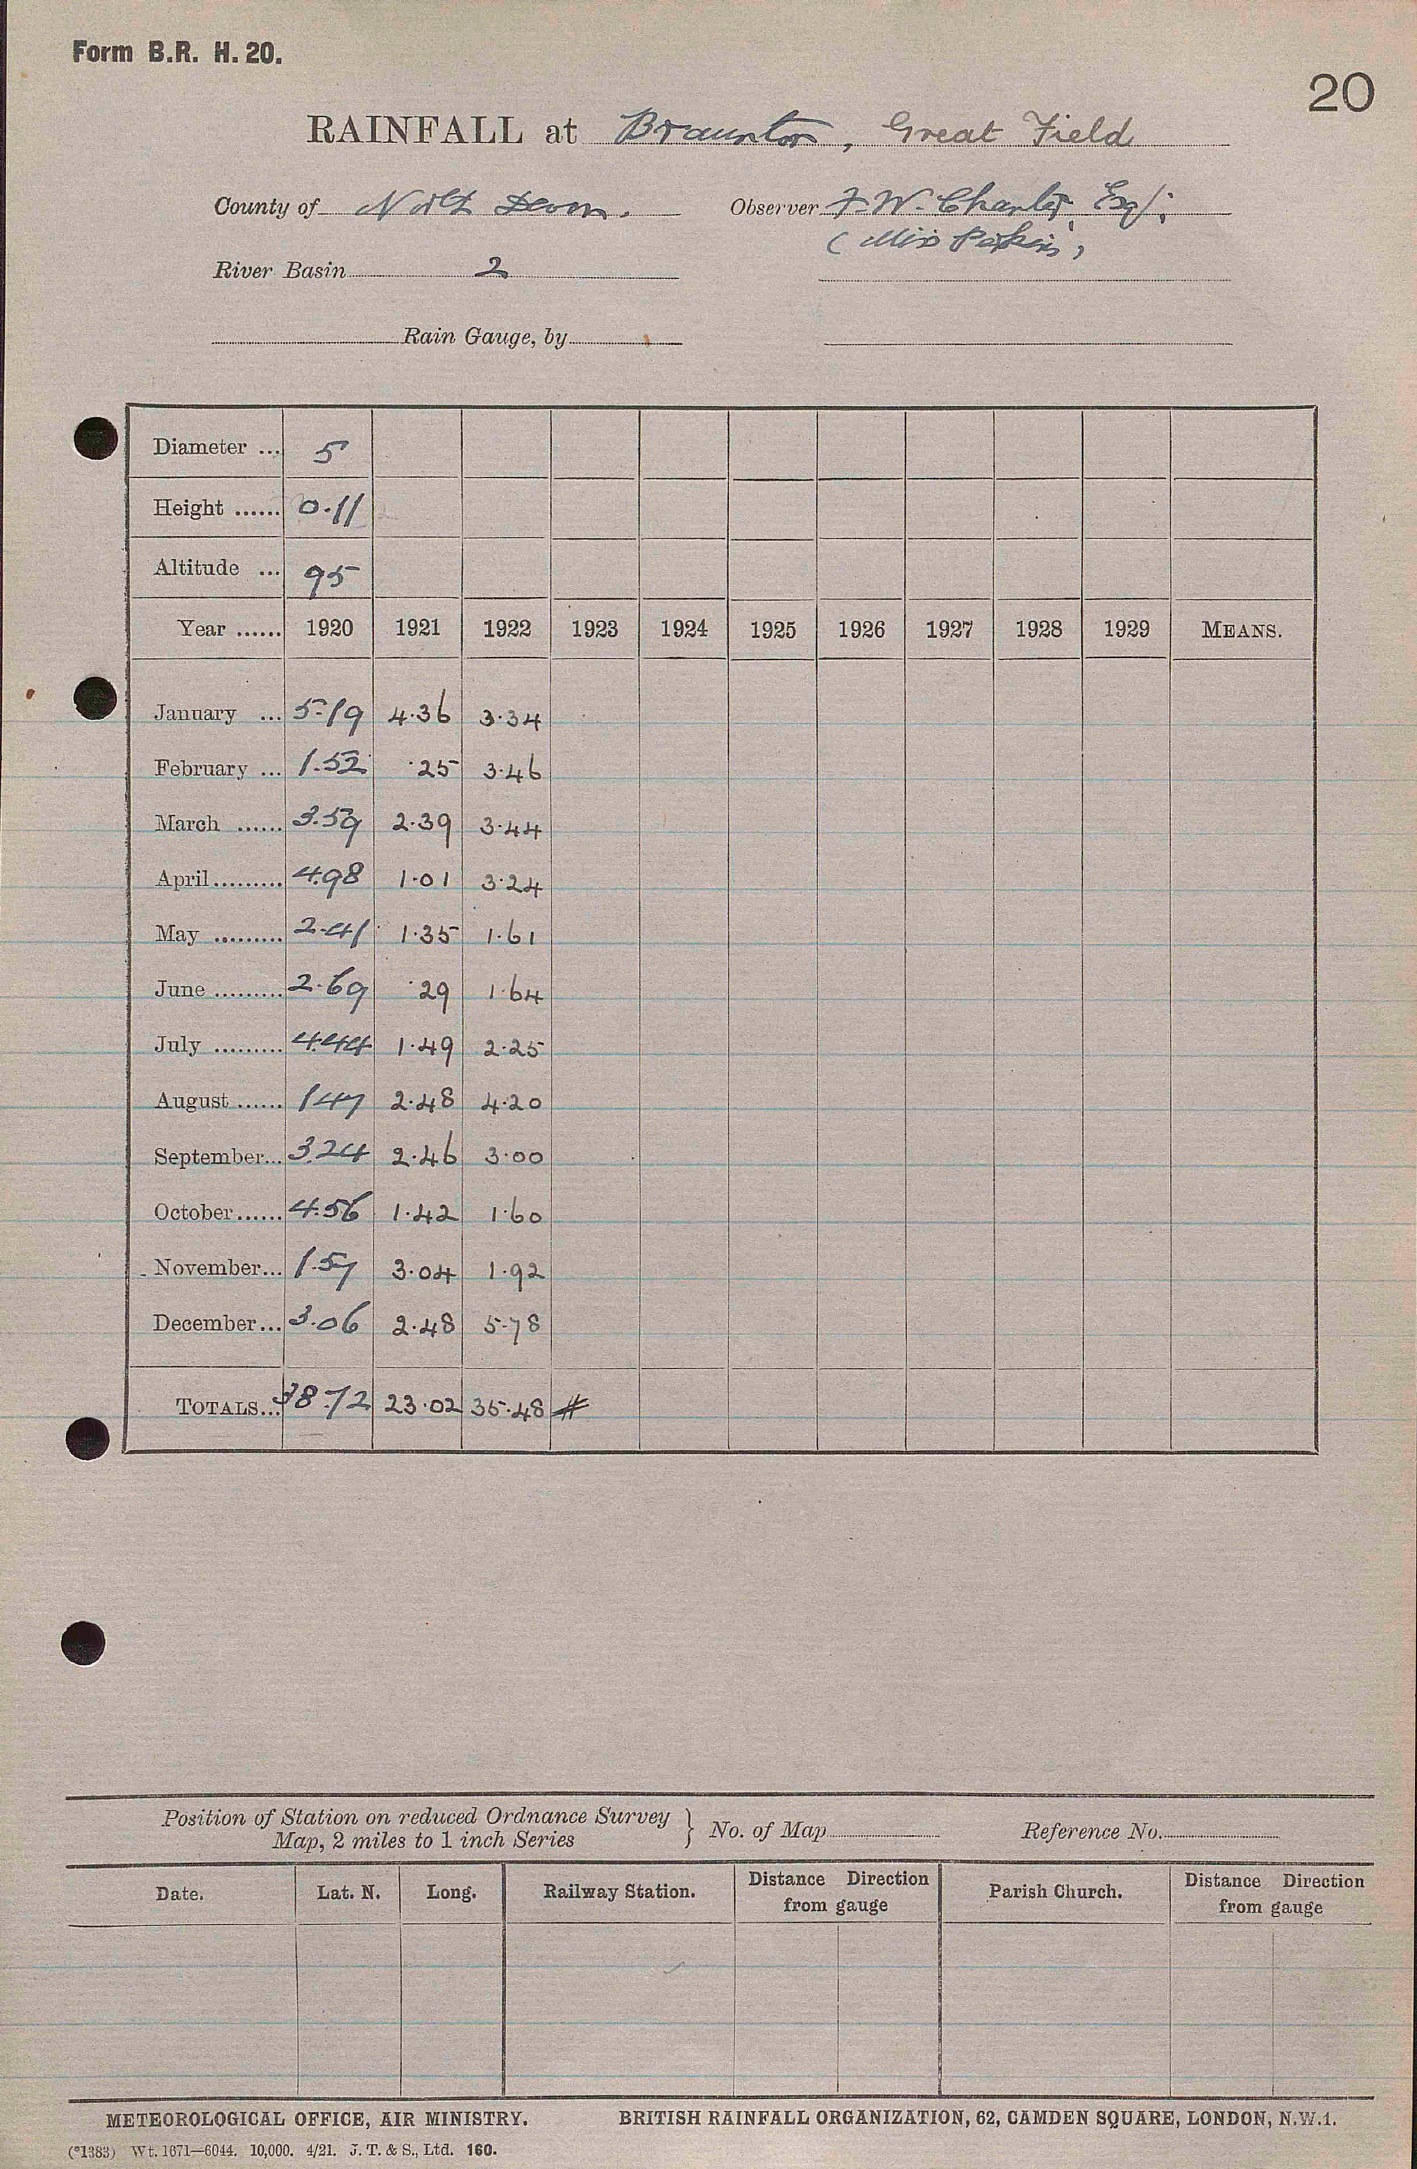 Form B.R. H. 20.
20
RAINFALL at Braunton, Great Field
County of North Devon. Observer F. W. Charley Esq;
(Miss Perkins)
River Basin 2
Rain Gauge, by
Diameter ... 5
Height ...... 0.11
Altitude ... 95
Year ...... 1920 1921 1922 1923 1924 1925 1926 1927 1928 1929 MEANS.
January ... 5.19 4.36 3.34
February ... 1.52 .25 3.46
March ...... 3.59 2.39 3.44
April ......... 4.98 1.01 3.24
May ......... 2.41 1.35 1.61
June ......... 2.69 .29 1.64
July ......... 4.44 1.49 2.25
August ...... 1.47 2.48 4.20
September... 3.24 2.46 3.00
October ...... 4.56 1.42 1.60
November... 1.57 3.04 1.92
December... 3.06 2.48 5.78
TOTALS... 38.72 23.02 35.48 #
Position of Station on reduced Ordnance Survey
Map, 2 miles to 1 inch Series } No. of Map Reference No.
Date. Lat. N. Long. Railway Station. Distance Direction from gauge Parish Church. Distance Direction from gauge
METEOROLOGICAL OFFICE, AIR MINISTRY. BRITISH RAINFALL ORGANIZATION, 62, CAMDEN SQUARE, LONDON, N.W.1.
(*1383) Wt. 1671—6044. 10,000. 4/21. J. T. & S., Ltd. 160.